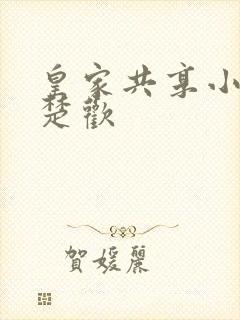 皇家共享小
楚歡
賀媛麗